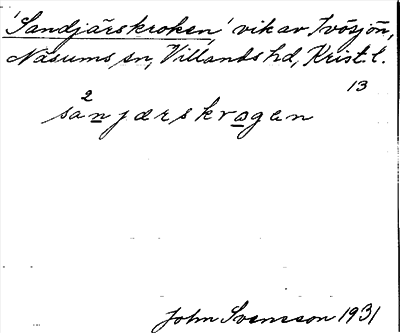 'Sandjärskroken', vik av Ivösjön,
Näsums sn, Villands hd, Krist. l.
13
2
sanjærskrogen
John Svensson 1931